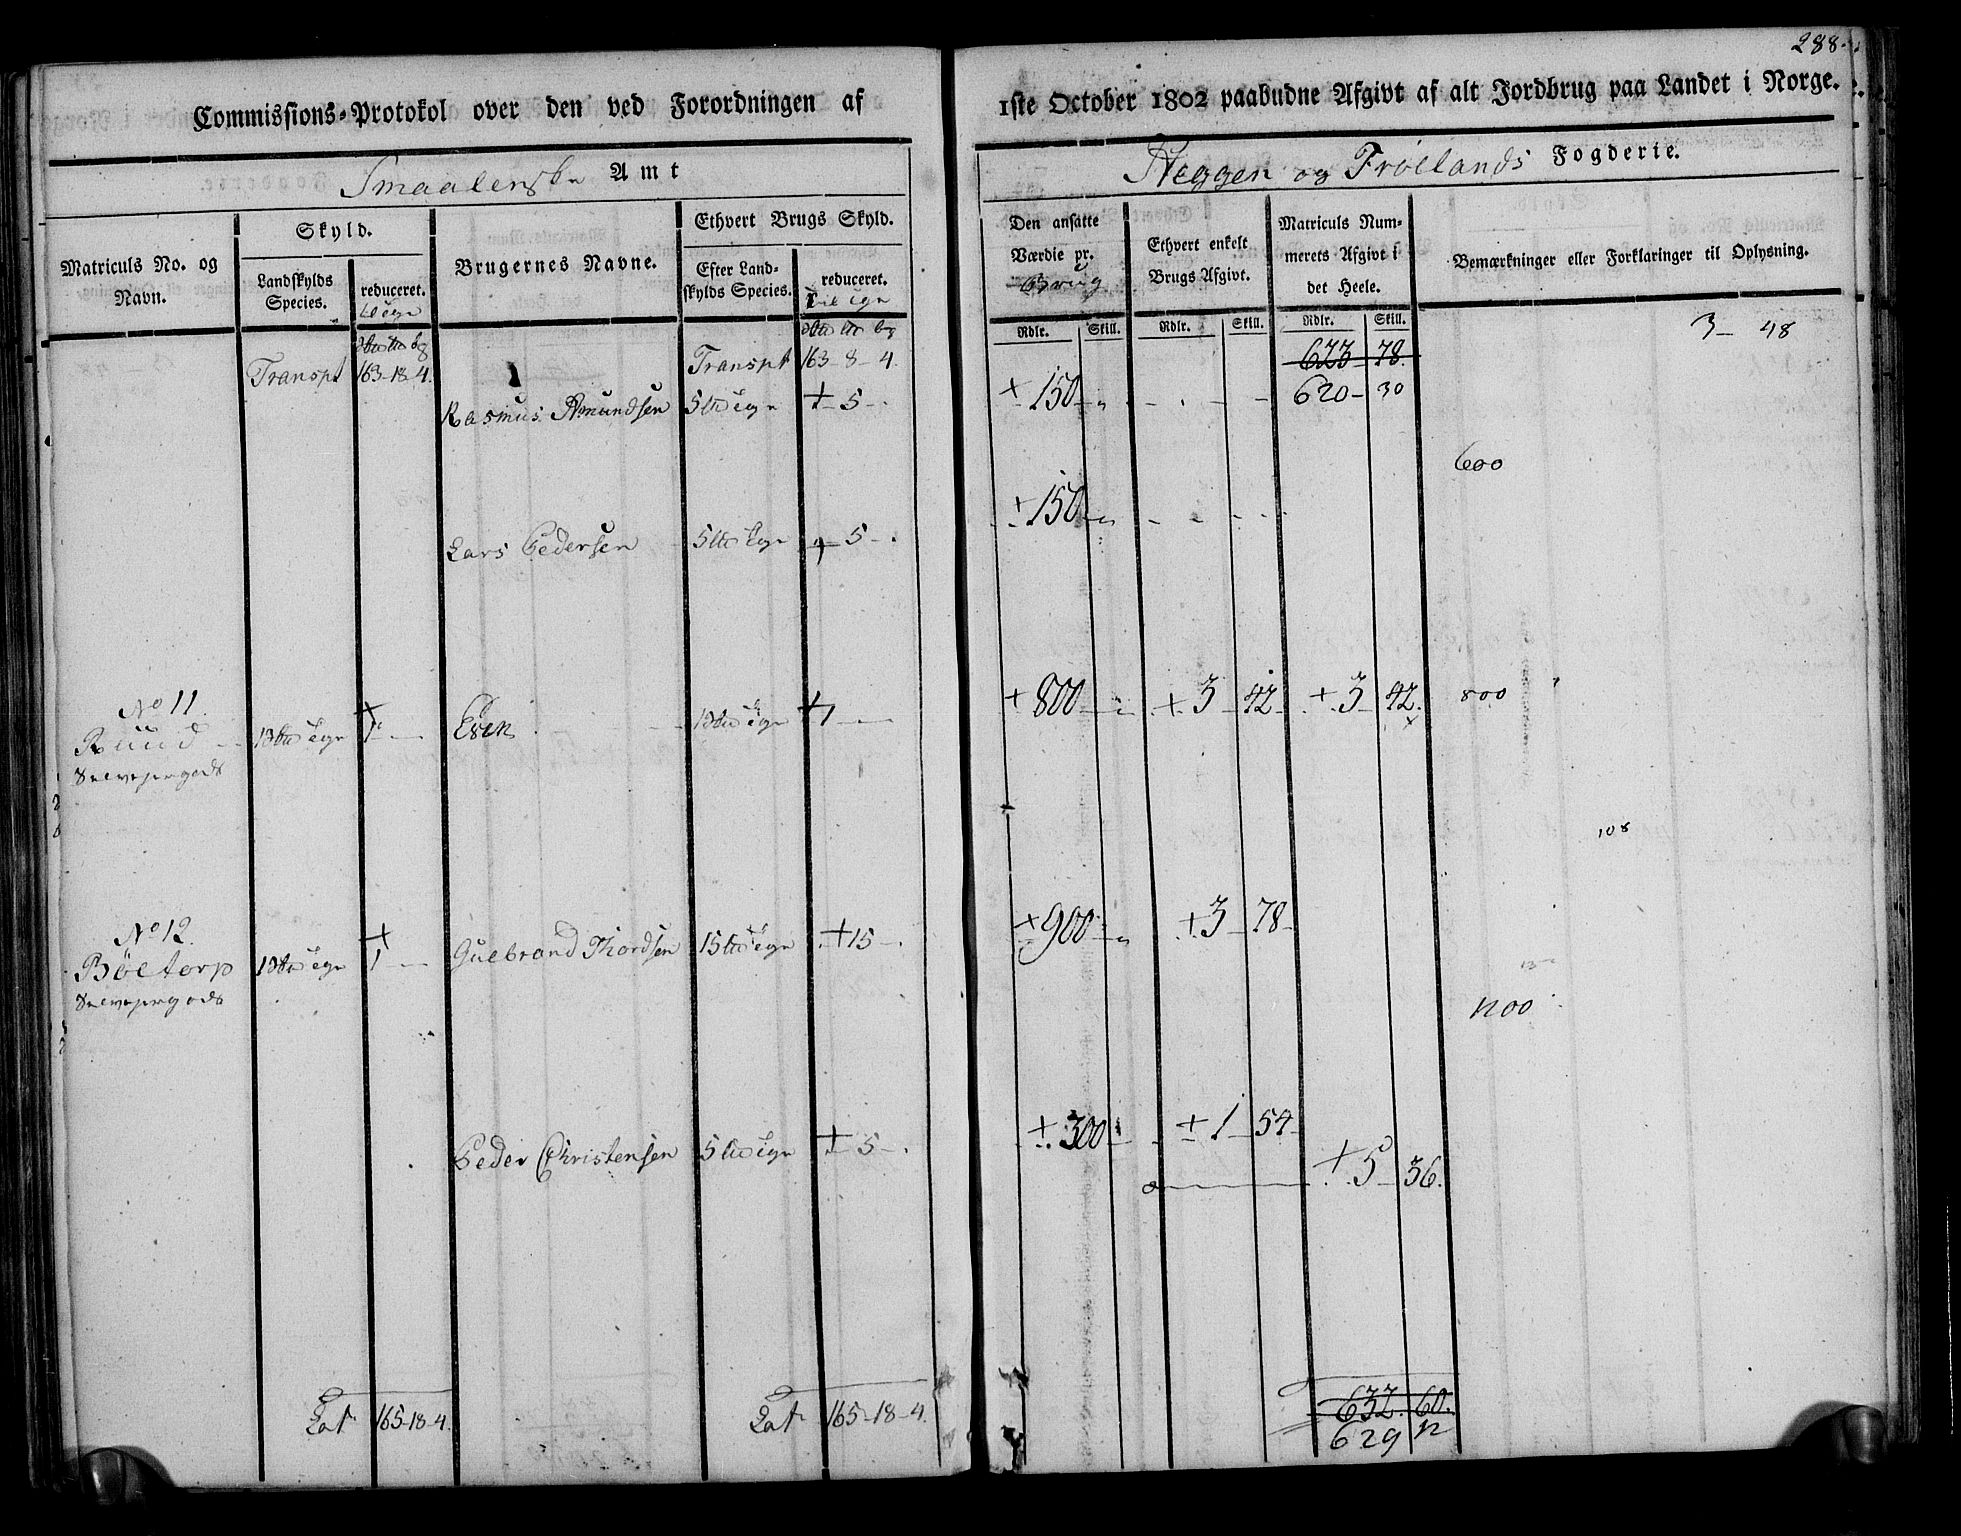 288.
Commissions-Protokol over den ved Forordningen af
1ste October 1802 paabudne Afgivt af alt Jordbrug paa Landet i Norge.
Smaalenske Amt
Heggen og Frølands Fogderie.
Matriculs No. og Navn.
Skyld.
Landskylds Species.
reduceret.
Brugernes Navne.
Ethvert Brugs Skyld.
Efter Landskylds Species.
reduceret.
Den ansatte Værdie pr. Brug
Ethvert enkelt Brugs Afgivt.
Matriculs Nummerets Afgivt i det Heele.
Bemærkninger eller Forklaringer til Oplysning.
Rdlr. Skill. Rdlr. Skill. Rdlr. Skill.
3 - 48
Transpt 163-18-4. Transpt 163-8-4. 623 78.
620 - 30
Rasmus Amundsen 5 + 5 + 150
600
Lars Pedersen 5 5 + 150
No 11.
Ruud 1 1 Even 1 1 + 800 + 3 42 + 3 42. 800
108
No 12.
Böetorp 1 1 Guebrand Thordsen 15 + 15 + 900 + 3 78
1200
Peder Christensen 5 + 5 + 300 + 1 54
+ 5 36.
Lat 165-18-4. Lat 165-18-4. 632. 60.
629 12